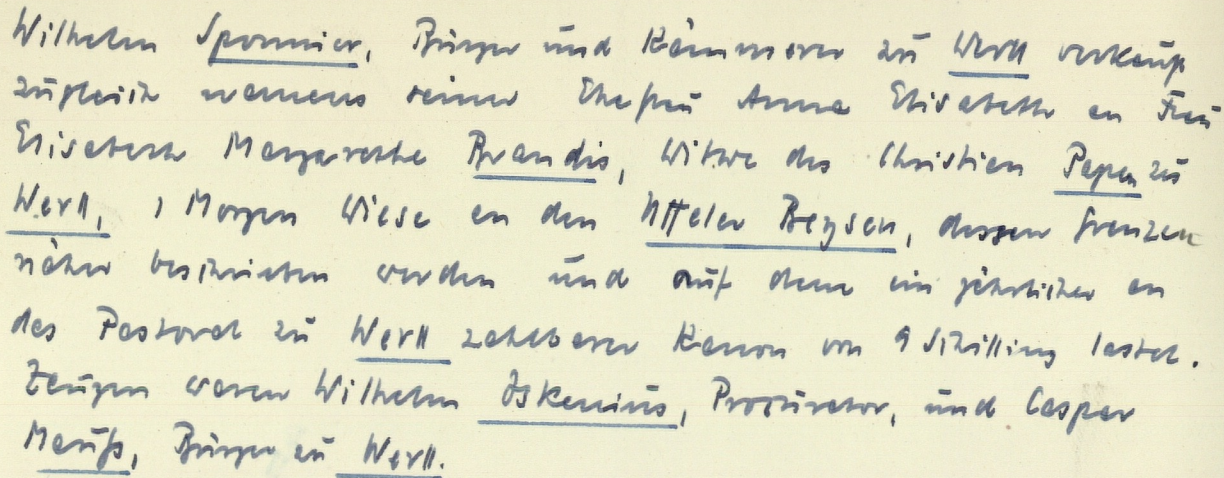 Wilhelm Sponnier, Bürger und Kämmerer zu Werll verkauft
zugleich namens seiner Ehefrau Anna Elisabeth an Frau
Elisabeth Margarethe Brandis, Witwe des Christian Papen zu
Werll, 1 Morgen Wiese an den Uffeler Beysen, dessen Grenzen
näher beschrieben werden und auf dem ein jährlicher an
das Pastorat zu Werll zahlbarer Kanon von 9 Schilling lastet.
Zeugen waren Wilhelm Iskenius, Procurator, und Caspar
Mauß, Bürger zu Werll.